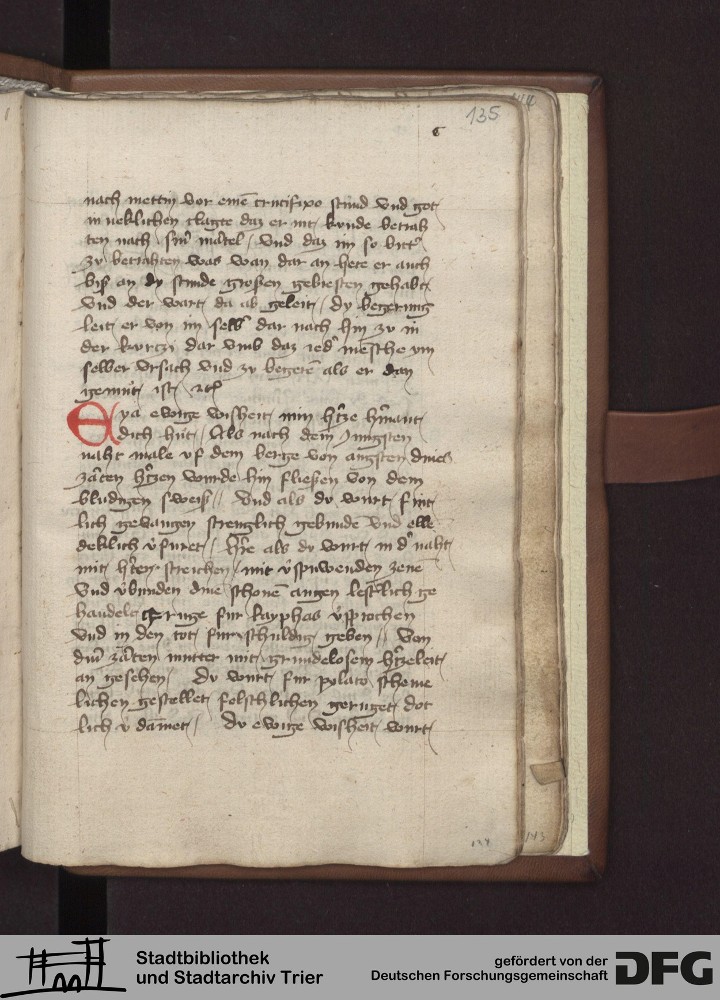 135
nach mettin vor eme crucifixo stund vnd got
in neklichen clagte daz er nit kunde betrah
ten nach sinr martel / vnd daz im so bittr
zu betrahten was wan dar an hete er auch
biß an dy stunde großen gebresten gehabt
vnd der wart da ab geleit / dy begerung
leit er von im selbr dar nach hin zu in
der kurczi dar vmb daz iedr mensche vin
selber vrsach vnd zu begern als er dan
gemut ist
Eya ewige wisheit min hrtze hrmant
dich hut / Als nach dem Jungsten
naht male vf dem berge von angsten dines
zarten hrtzen wurde hin fließen von dem
bludigen sweiß // Vnd als du wurt fint
lich gevangen strenglich gebunde vnd elle
deklich vfuret / hre als du wurt in dr naht
mit hrten streichen / mit vspuwenden
vnd vbunden dine schonen augen lestrlich ge
handelt fruge fur kayphas vsprochen
vnd in den tot furschuldig geben // Von
dinr zarten mutter mit grundelosem hrtzeleit
an gesehen / Du wurt fur pylato scheme
lichen gestellet felschlichen geruget dot
lich v damet / Du ewige wisheit wurt
Stadtbibliothek
und Stadtarchiv Trier
gefördert von der
Deutschen Forschungsgemeinschaft
DFG